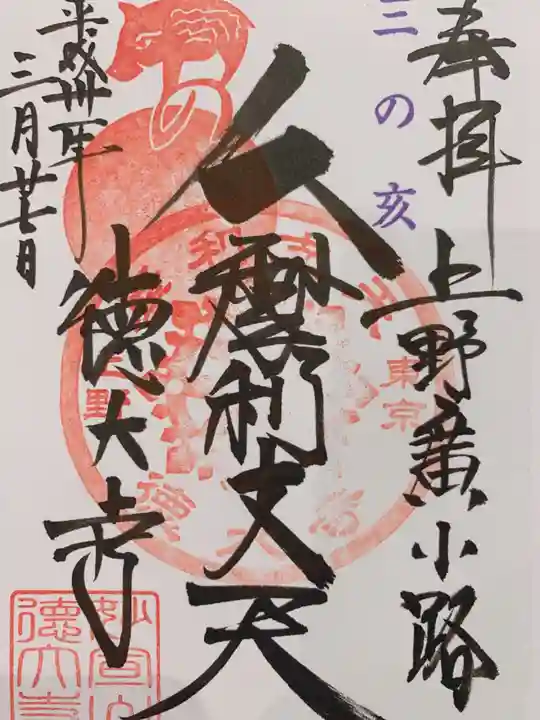 奉拝
上野廣小路
三の亥
摩利支天
平成卅年
三月廿七日
徳大寺
東京
上野
妙宣山
徳大寺